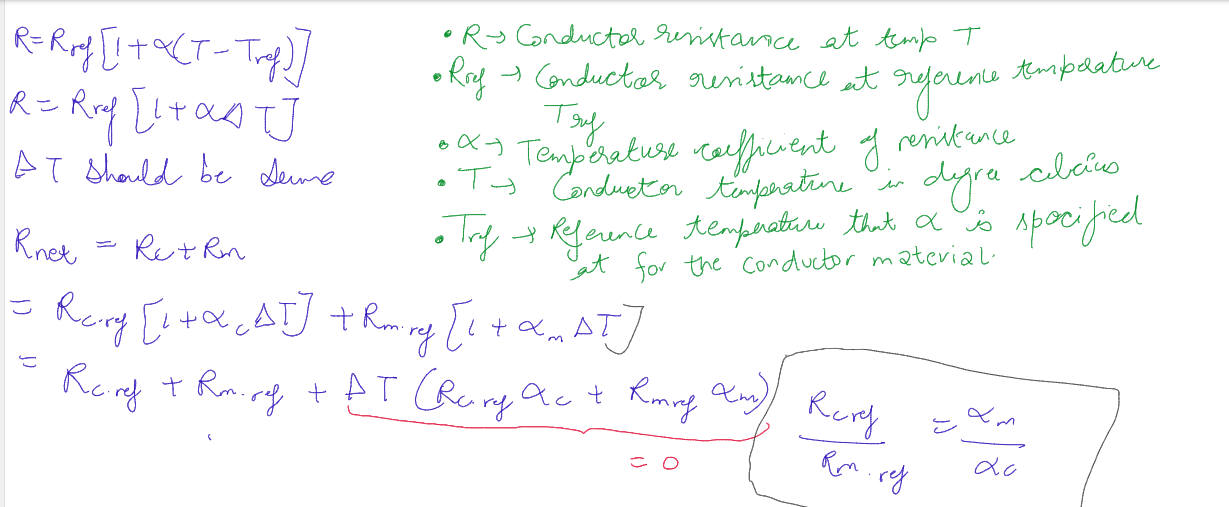 R = R_ref [1 + α(T - T_ref)]
R = R_ref [1 + αΔT]
ΔT should be same
R_net = R_c + R_m
= R_c.ref [1 + α_c ΔT] + R_m.ref [1 + α_m ΔT]
= R_c.ref + R_m.ref + ΔT (R_c.ref α_c + R_mref α_m)
= 0
• R → Conductor resistance at temp T
• Rref → Conductor resistance at reference temperature
Tref
• α → Temperature coefficient of resistance
• T → Conductor temperature in degree celcius
• Tref → Reference temperature that α is spocified
at for the conductor material.
R_cref / R_m.ref = α_m / α_c